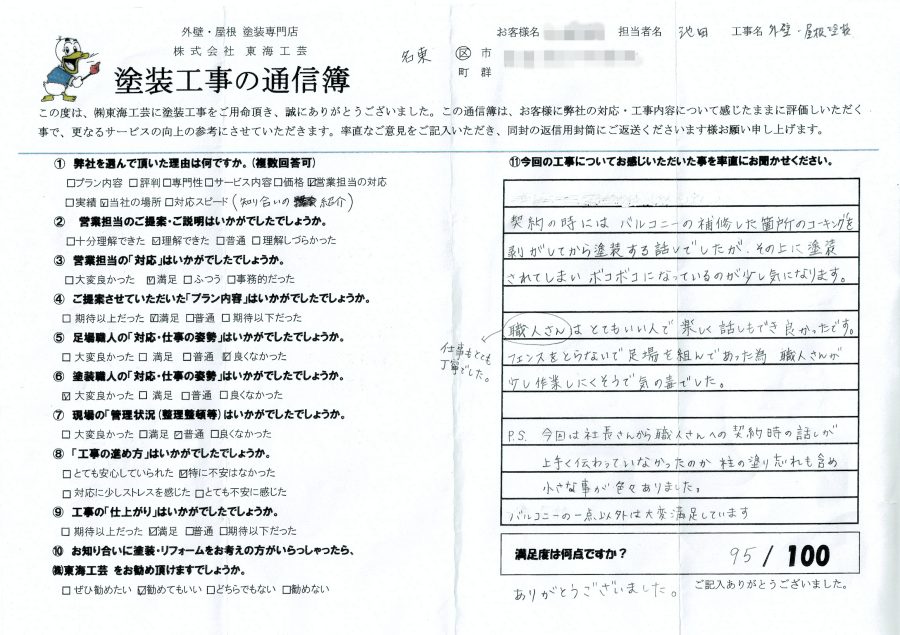 外壁・屋根 塗装専門店
株式会社 東海工芸
塗装工事の通信簿
お客様名
担当者名 池田
工事名 外壁・屋根塗装
名東 区 市
町 群
この度は、㈱東海工芸に塗装工事をご用命頂き、誠にありがとうございました。この通信簿は、お客様に弊社の対応・工事内容について感じたままに評価しいただく
事で、更なるサービスの向上の参考にさせていただきます。率直なご意見をご記入いただき、同封の返信用封筒にご返送くださいます様お願い申し上げます。
① 弊社を選んで頂いた理由は何ですか。(複数回答可)
□プラン内容 □評判□専門性□サービス内容□価格☑営業担当の対応
□実績☑当社の場所□対応スピード(知り合いの 紹介)
② 営業担当のご提案・ご説明はいかがでしたでしょうか。
□十分理解できた ☑理解できた □普通 □理解しづらかった
③ 営業担当の「対応」はいかがでしたでしょうか。
□大変良かった ☑満足 □ふつう □事務的だった
④ ご提案させていただいた「プラン内容」はいかがでしたでしょうか。
□期待以上だった ☑満足 □普通 □期待以下だった
⑤ 足場職人の「対応・仕事の姿勢」はいかがでしたでしょうか。
□大変良かった □満足 □普通 ☑良くなかった
⑥ 塗装職人の「対応・仕事の姿勢」はいかがでしたでしょうか。
☑大変良かった □満足 □普通 □良くなかった
⑦ 現場の「管理状況(整理整頓等)はいかがでしたでしょうか。
□大変良かった □満足 ☑普通 □良くなかった
⑧ 「工事の進め方」はいかがでしたでしょうか。
□とても安心していられた ☑特に不安はなかった
□対応に少しストレスを感じた □とても不安に感じた
⑨ 工事の「仕上がり」はいかがでしたでしょうか。
□期待以上だった ☑満足 □普通 □期待以下だった
⑩ お知り合いに塗装・リフォームをお考えの方がいらっしゃったら、
㈱東海工芸 をお勧め頂けますでしょうか。
□ぜひ勧めたい ☑勧めてもいい □どちらでもない □勧めない
⑪今回の工事についてお感じいただいた事を率直にお聞かせください。
契約の時には バルコニーの補修した箇所のコーキングを
剥がしてから塗装する話しでしたが、その上に塗装
されてしまい ボコボコになっているのが少し気になります。
職人さんは とてもいい人で 楽しく 話しもでき 良かったです。
仕事もとても
丁寧でした。
フェンスをとらないで 足場を組んであった為 職人さんが
少し作業しにくそうで 気の毒でした。
P.S. 今回は社長さんから職人さんへの契約時の話しが
上手く伝わっていなかったのか 柱の塗り忘れも含め
小さな事が色々ありました。
バルコニーの一点以外は大変満足しています
満足度は何点ですか? 95/100
ありがとうございました。
ご記入ありがとうございました。